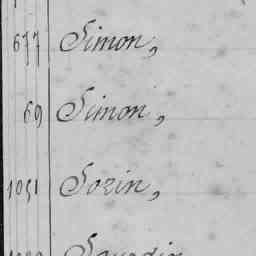 677 Simon,
69 Simon,
1051 Sozin,